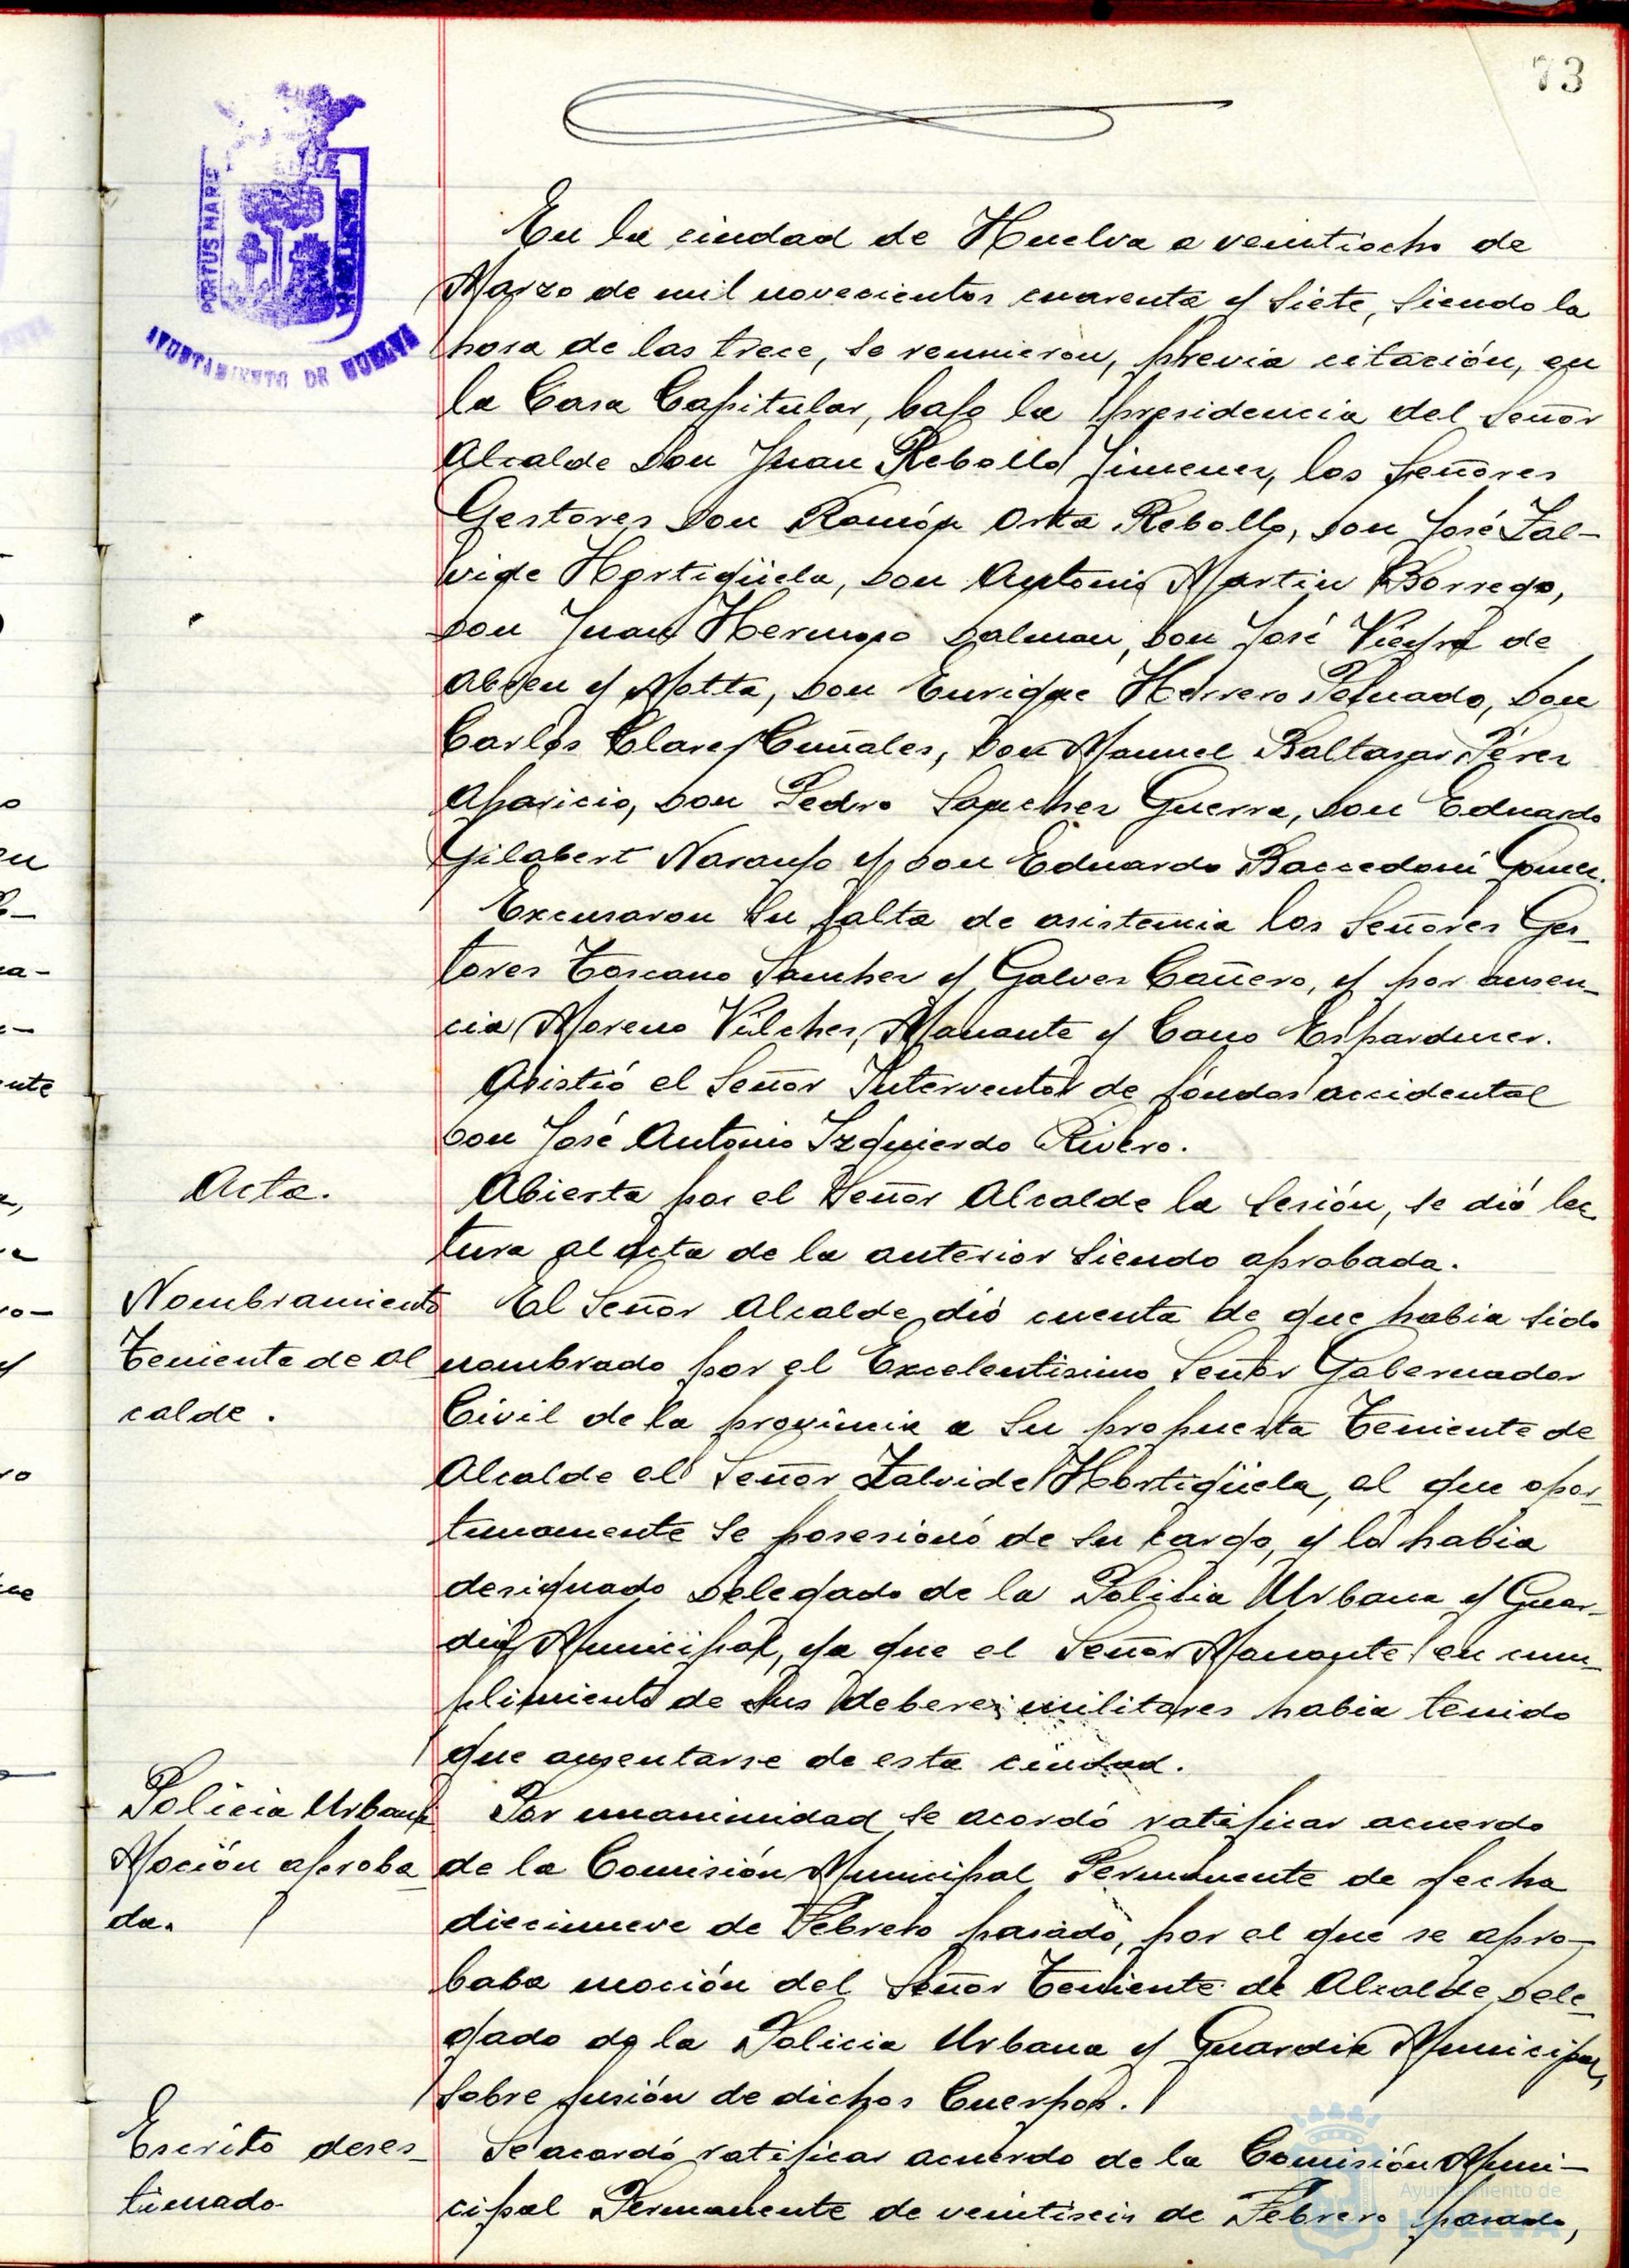 73
PORTUS MARIS
AYUNTAMIENTO DE HUELVA
En la ciudad de Huelva a veintiocho de
Marzo de mil novecientos cuarenta y siete, siendo la
hora de las trece, se reunieron, previa citación, en
la Casa Capitular, bajo la presidencia del Señor
Alcalde Don Juan Rebollo Jimenez, los Señores
Gestores Don Ramón Orta Rebollo, Don José Zal-
vide Hortigüela, Don Antonio Martin Borrego,
Don Juan Hermoso Dalmau, Don José Vieyra de
Abreu y Motta, Don Enrique Herrero Peinado, Don
Carlos Clarez Cuñales, Don Manuel Baltasar Pérez
Aparicio, Don Pedro Sanchez Guerra, Don Eduardo
Gilabert Naranjo y Don Eduardo Baccedoni Gomez.
Excusaron su falta de asistencia los Señores Ges-
tores Toscano Sanchez y Galvez Cañero, y por ausen-
cia Moreno Vilchez, Manante y Cano Esparducer.
Asistió el Señor Interventor de fondos accidental
Don José Antonio Izquierdo Rivero.
Acta.
Abierta por el Señor Alcalde la sesión, se dió lec
tura al acta de la anterior siendo aprobada.
Nombramiento
Teniente de Al
calde.
El Señor Alcalde dió cuenta de que habia sido
nombrado por el Excelentisimo Señor Gobernador
Civil de la provincia a su propuesta Teniente de
Alcalde el Señor Zalvide Hortigüela, el que opor-
tunamente se posesionó de su cargo, y lo habia
designado Delegado de la Policia Urbana y Guar-
dia Municipal, ya que el Señor Manante en cum-
plimiento de sus deberes militares habia tenido
que ausentarse de esta ciudad.
Policia Urbana
Moción aproba
da.
Por unanimidad se acordó ratificar acuerdo
de la Comisión Municipal Permanente de fecha
diecinueve de Febrero pasado, por el que se apro-
baba moción del Señor Teniente de Alcalde Dele-
gado de la Policia Urbana y Guardia Municipal,
sobre fusión de dichos Cuerpos.
Escrito deses-
timado
Se acordó ratificar acuerdo de la Comisión Muni-
cipal Permanente de veintiseis de Febrero pasado,
Ayuntamiento de
HUELVA